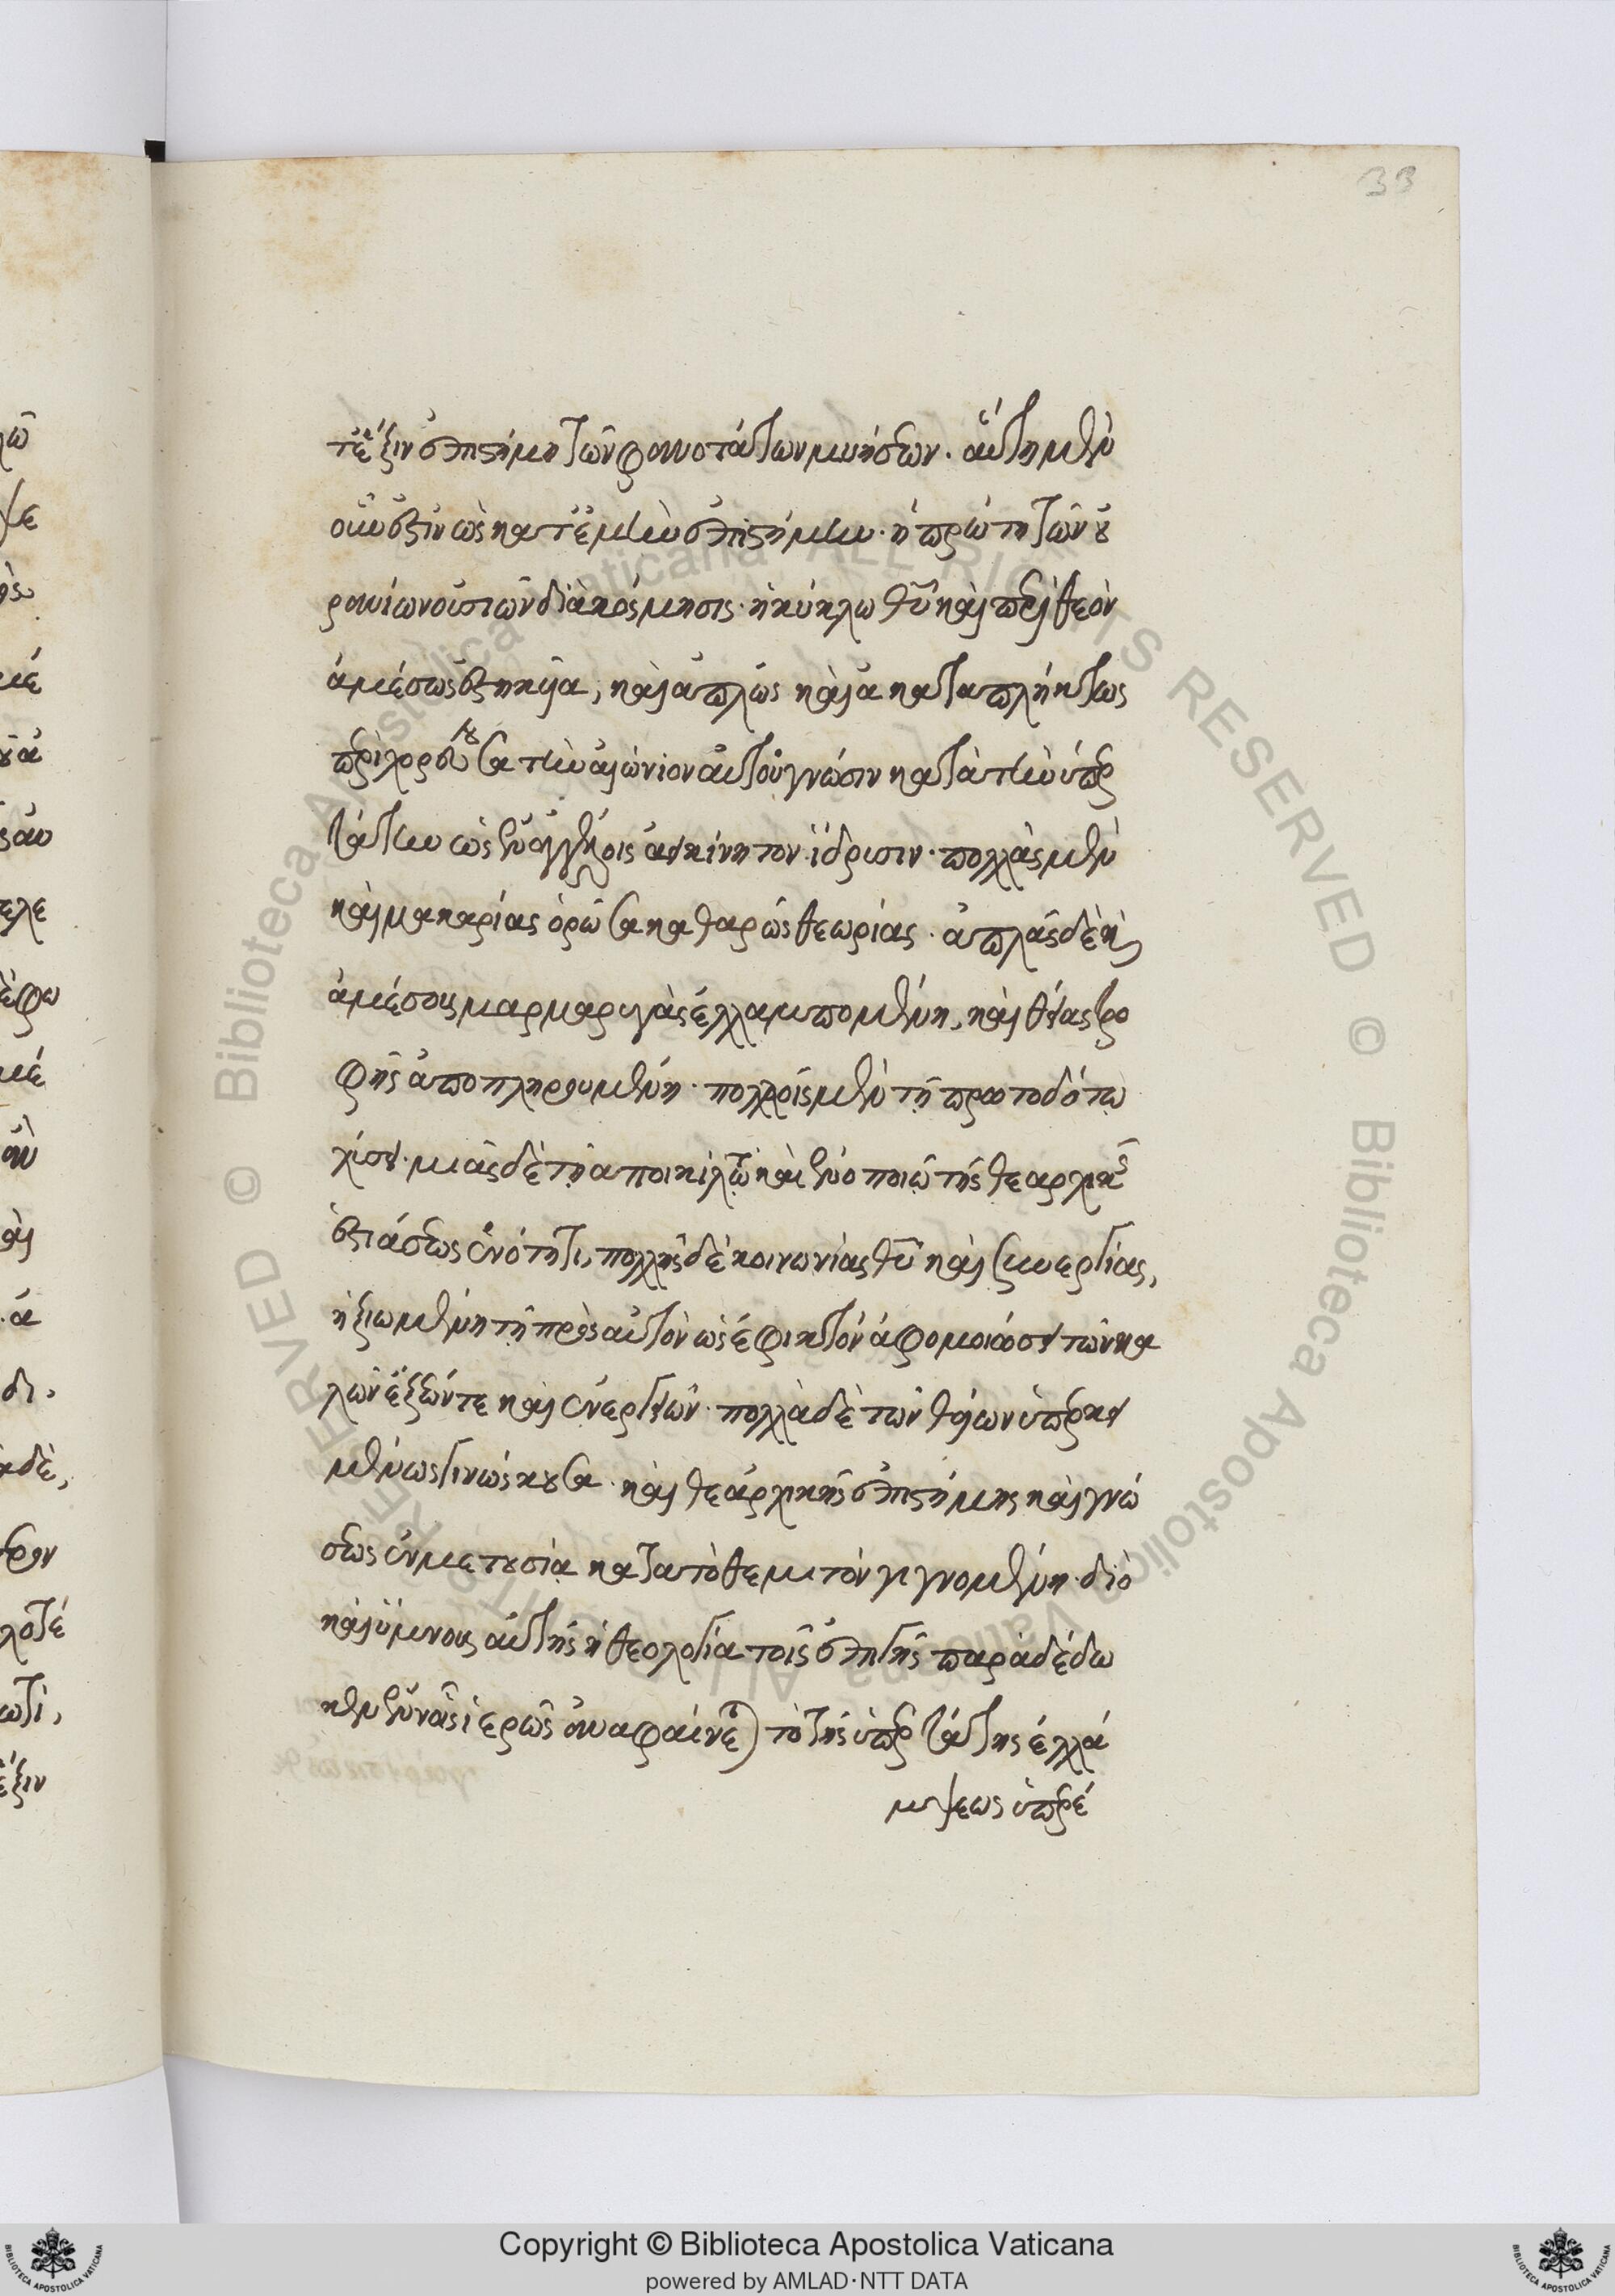 τάξιν ἐπιστήμη τῶν φανοτάτων μυήσεων. αὕτη μὲν
οὖν ἐστιν ὡς κατ' ἐμὴν ἐπιστήμην· ἡ πρώτη τῶν οὐ
ρανίων οὐσιῶν διακόσμησις· ἡ κύκλω θυ καὶ περὶ θεὸν
ἀμέσως ἑστηκυῖα, καὶ ἁπλῶς καὶ ἀκαταπλήκτως
περιχορεύουσα τὴν αἰώνιον αὐτοῦ γνῶσιν κατὰ τὴν ὑπερ
τάτην ὡς ἐν ἀγγέλοις ἀεικίνητον ἵδρυσιν· πολλὰς μὲν
καὶ μακαρίας ὁρῶσα καθαρῶς θεωρίας. ἁπλᾶς δὲ καὶ
ἀμέσους μαρμαρυγὰς ἐλλαμπομένη, καὶ θείας τρο
φῆς ἀποπληρουμένη· πολλοῖς μὲν τῇ πρωτοδότῳ
χύσει· μιᾶς δὲ τῇ ἀποικίλτῳ καὶ ἑνοποιῷ τῆς θεαρχικῆς
ἑστιάσεως ἑνότητι, πολλῆς δὲ κοινωνίας θυ καὶ συνεργίας,
ἠξιωμένη τῇ πρὸς αὐτὸν ὡς ἐφικτὸν ἀφομοιώσει τῶν κα
λῶν ἕξεών τε καὶ ἐνεργειῶν· πολλὰ δὲ τῶν θείων ὑπερκει
μένως γινώσκουσα· καὶ θεαρχικῆς ἐπιστήμης καὶ γνώ
σεως ἐν μετουσίᾳ κατὰ τὸ θεμιτὸν γιγνομένη· διὸ
καὶ ὕμνους αὐτῆς ἡ θεολογία τοῖς ἐπὶ γῆς παραδέδω
κεν ἐν οἷς ἱερῶς ἀναφαίνεται τὸ τῆς ὑπερτάτης ἐλλά
μψεως ὑπερέ
33
Copyright © Biblioteca Apostolica Vaticana
powered by AMLAD·NTT DATA